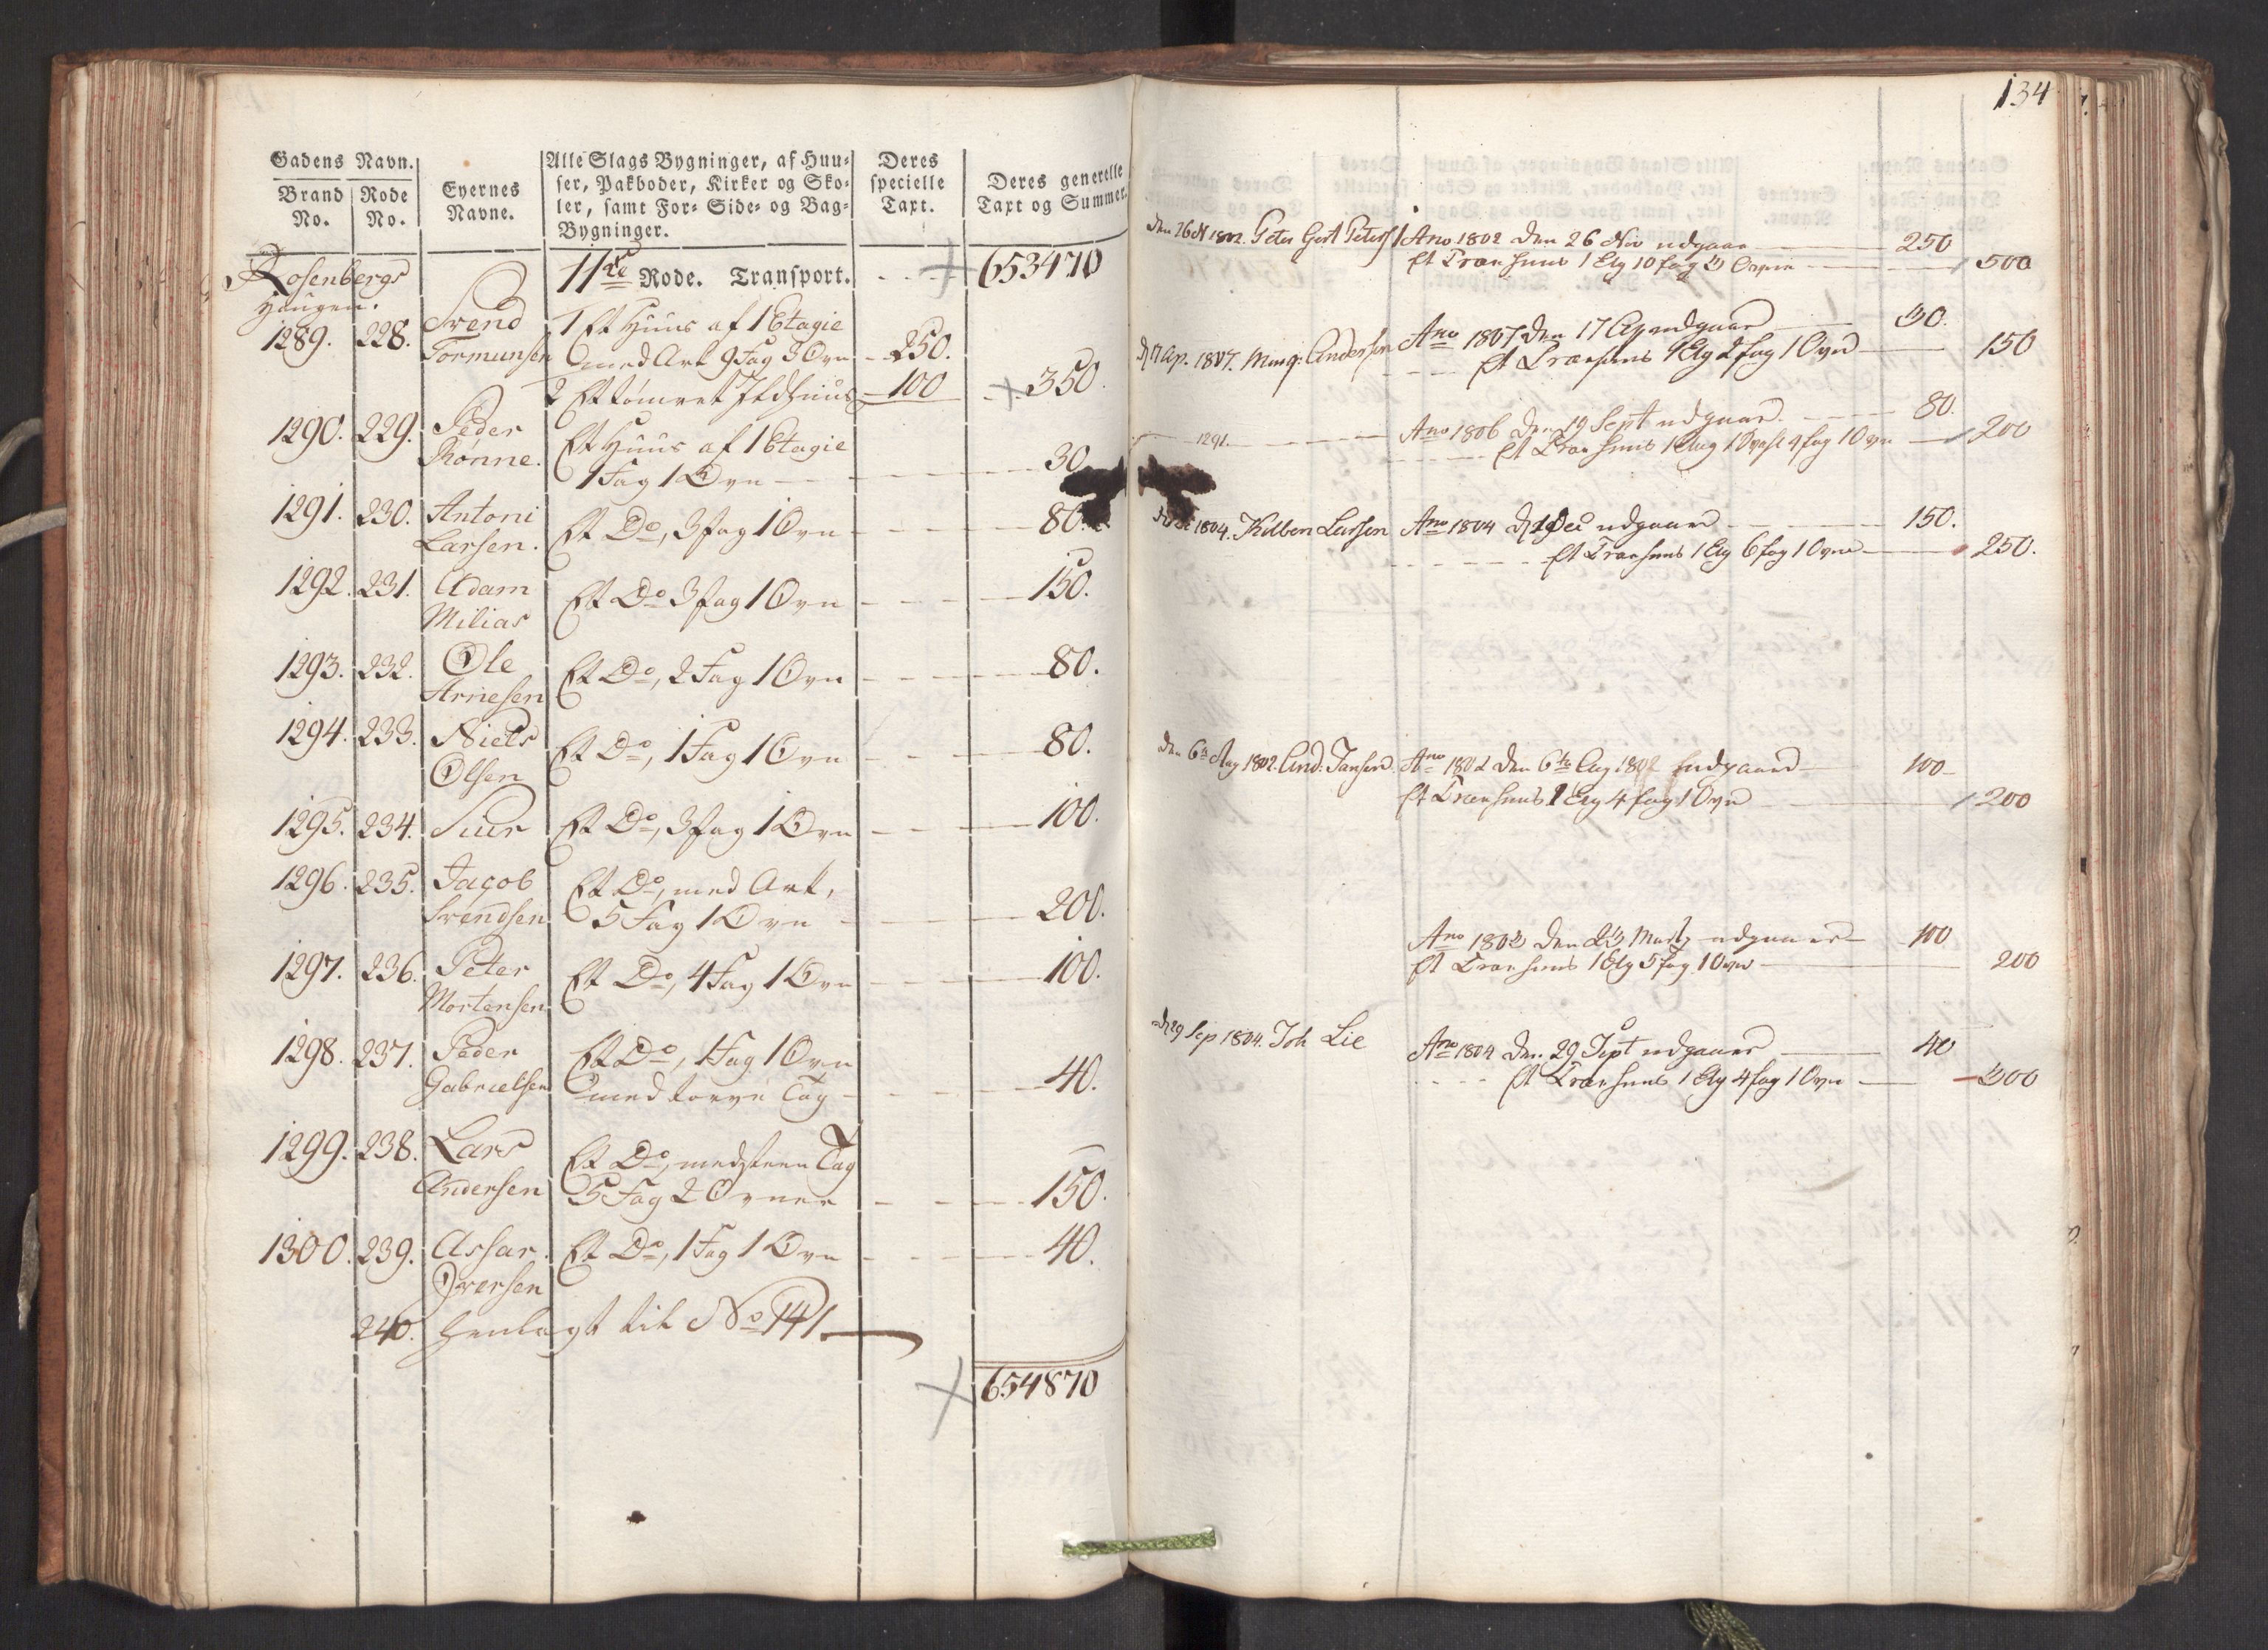 Gadens Navn.
Brand No. Rode No. Eyernes Navne. Alle Slags Bygninger, af Huu-
ser, Pakboder, Kirker og Sko-
ler, samt For- Side- og Bag-
Bygninger. Deres specielle Taxt. Deres generelle Taxt og Summer.
Rosenbergs 11te Rode. Transport. 653470
Haugen.
1289. 228. Svend 1 Et Huus af 1 Etagie
Tormunsen med Ark 9 Fag 3 Ovn 250.
2 Et tømret Ildhuus 100 350.
1290. 229. Peder Et Huus af 1 Etagie
Rønne. 1 Fag 1 Ovn 30
1291. 230. Antoni Et Do, 3 fag 1 Ovn 80.
Larsen.
1292. 231. Adam Et Do 3 fag 1 Ovn 150.
Milias
1293. 232. Ole Et Do, 2 Fag 1 Ovn 80.
Arnesen
1294. 233. Niels Et Do, 1 Fag 1 Ovn 80.
Olsen
1295. 234. Siur Et Do, 3 fag 1 Ovn 100.
1296. 235. Jacob Et Do, med Ark,
Svendsen 5 Fag 1 Ovn 200.
1297. 236. Peter Et Do, 4 Fag 1 Ovn 100.
Mortensen
1298. 237. Peder Et Do, 1 Fag 1 Ovn
Gabrielsen med torve Tag 40.
1299. 238. Lars Et Do, med steen Tag
Andersen 5 Fag 2 Ovner 150.
1300. 239. Assar Et Do, 1 Fag 1 Ovn 40.
Iversen
240. henlagt til No 141
654870
134
den 26 N 1802. Peter Gert Peters Ano 1802 den 26 Nov udgaar 250
Et Træhuus 1 Etg 10 fag 3 Ovne 500
d 17 Ap. 1807. Andersen Ano 1807 den 17 Ap udgaar 30.
Et Træhuus 1 Etg 2 fag 1 Ovn 150
1291. Ano 1806 den 19 Sept udgaar 80.
Et Træhuus 1 Etag 1 fag 1 Ovn 200
1804. Larsen Ano 1804 d 19 Dec udgaar 150.
Et Træhuus 1 Etg 6 fag 1 Ovn 250.
den 6te Aug 1802. And: Jansen. Ano 1802 den 6te Aug. 1802 udgaar 100
Et Træhuus 1 Etg 4 fag 1 Ovn 200
Ano 1803 den 23 Martz udgaar 100
Et Træhuus 1 Etg 5 fag 1 Ovn 200
d 29 Sep 1804. Joh Lie Ano 1804 den 29 Sept udgaar 40
Et Træhuus 1 Etg 4 fag 1 Ovn 300